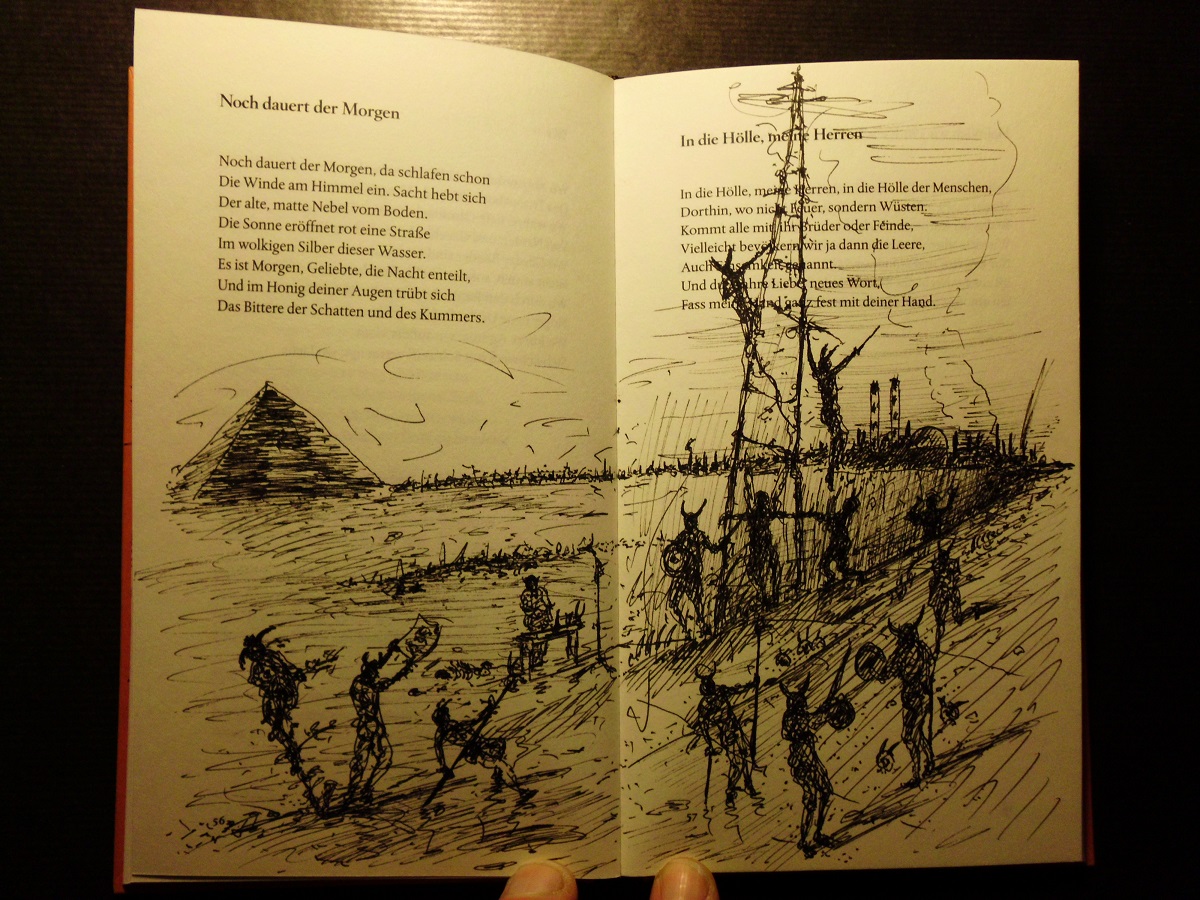 Noch dauert der Morgen
Noch dauert der Morgen, da schlafen schon
Die Winde am Himmel ein. Sacht hebt sich
Der alte, matte Nebel vom Boden.
Die Sonne eröffnet rot eine Straße
Im wolkigen Silber dieser Wasser.
Es ist Morgen, Geliebte, die Nacht enteilt,
Und im Honig deiner Augen trübt sich
Das Bittere der Schatten und des Kummers.
56
In die Hölle, meine Herren
In die Hölle, meine Herren, in die Hölle der Menschen,
Dorthin, wo nicht Feuer, sondern Wüsten.
Kommt alle mit, ihr Brüder oder Feinde,
Vielleicht bevölkern wir ja dann die Leere,
Auch Einsamkeit genannt.
Und du, wahre Liebe, neues Wort,
Fass meine Hand ganz fest mit deiner Hand.
57